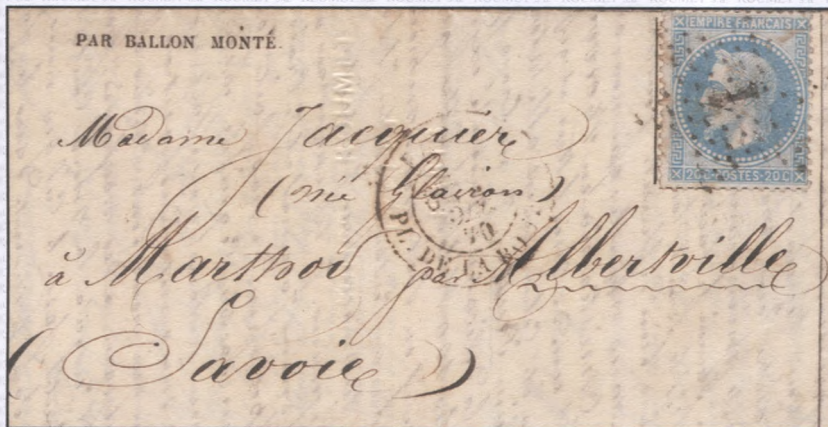 PAR BALLON MONTÉ.
EMPIRE FRANCAIS
1
20 C POSTES 20 C
Madame Jacquier
(née Glairon)
70
PL. DE LA BOURSE
à Marthod par Albertville
(Savoie)